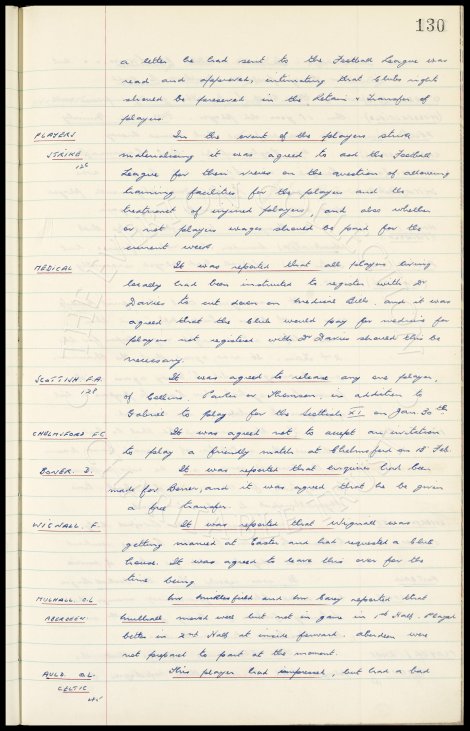 130
a letter he had sent to the Football League was
read and approved, intimating that Clubs rights
should be preserved in the Retain & Transfer of
players.
PLAYERS In the event of the players strike
STRIKE materialising it was agreed to ask the Football
126 League for their views on the question of allowing
training facilities for the players and the
treatment of injured players, and also whether
or not players wages should be paid for the
current week.
MEDICAL It was reported that all players living
locally had been instructed to register with Dr
Davies to cut down on medical Bills and it was
agreed that the Club would pay for medicine for
players not registered with Dr Davies should this be
necessary.
SCOTTISH F.A. It was agreed to release any one player,
128 of Collins, Parker or Thomson, in addition to
Gabriel to play for the Scottish XI on Jan 30th.
CHELMSFORD F.C. It was agreed not to accept an invitation
to play a friendly match at Chelmsford on 18 Feb.
BONER. D. It was reported that enquiries had been
made for Boner, and it was agreed that he be given
a free transfer
WIGNALL. F. It was reported that Wignall was
getting married at Easter and had requested a Club
house. It was agreed to leave this over for the
time being.
MULHALL. O.L. Mr and Mr Carey reported that
ABERDEEN Mulhall moved well but not in game in 1st Half. Played
better in 2nd Half at inside forward. Aberdeen were
not prepared to part at the moment.
AULD O.L. This player had impressed, but had a bad
CELTIC